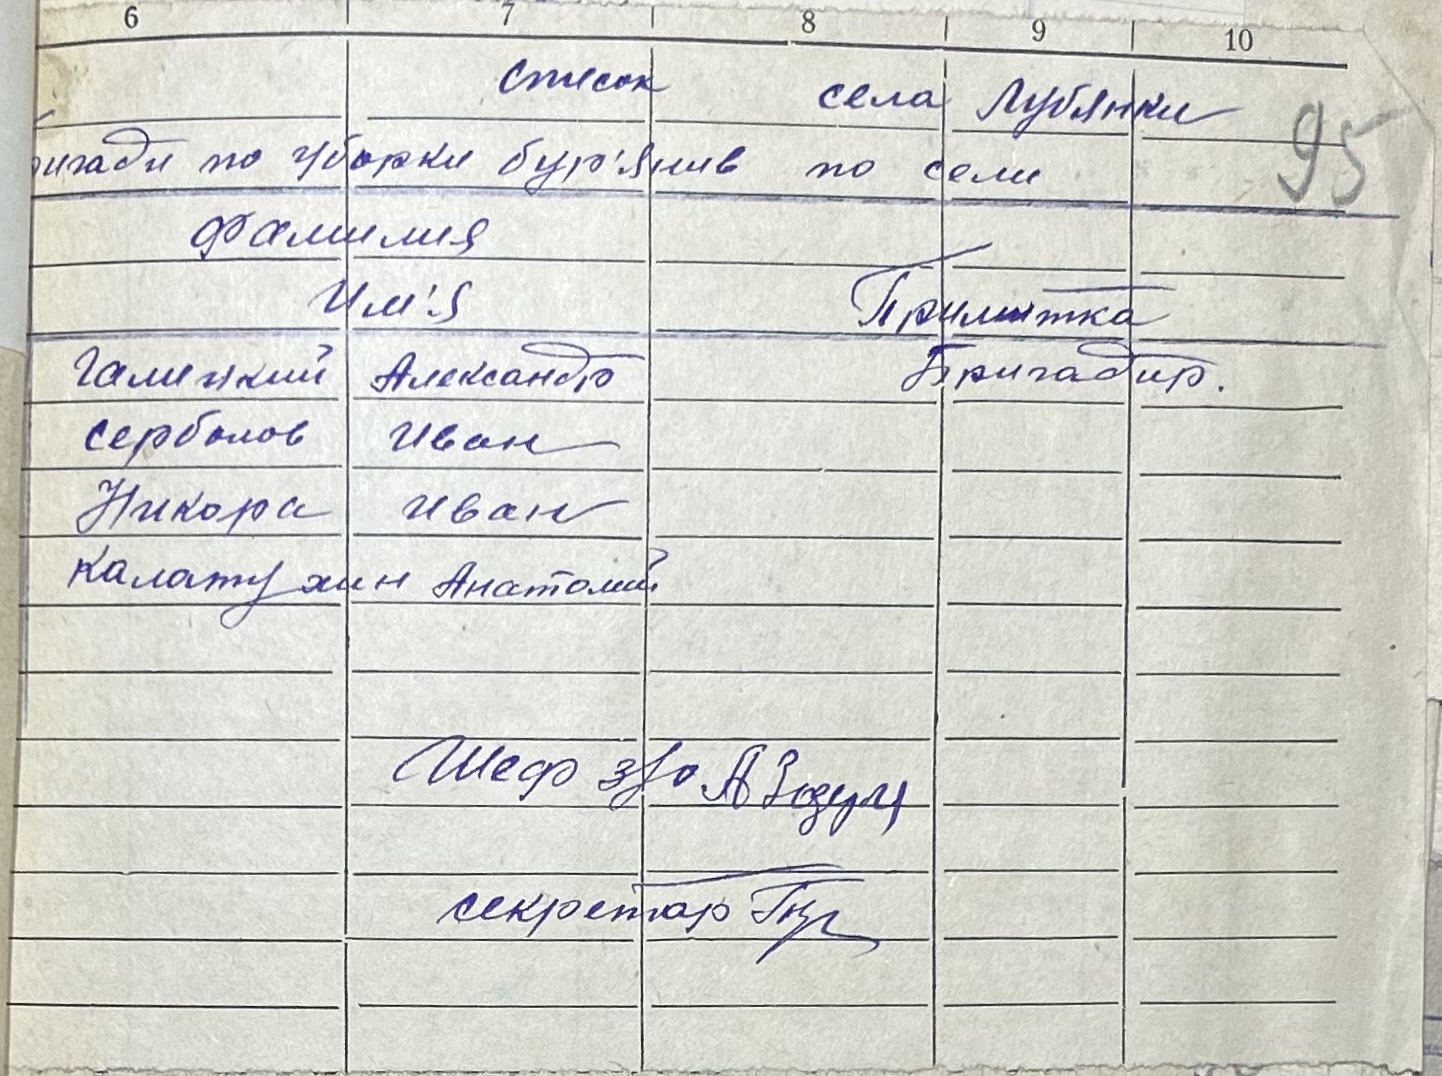 6 7 8 9 10
Список села Лубянки
95
бригади по уборки бур'янив по сели
Фамилия
Им'я Примитка
Галицкий Александр Бригадир.
Серболов Иван
Никора Иван
Калатухин Анатолий
Шеф з/о А
секретар